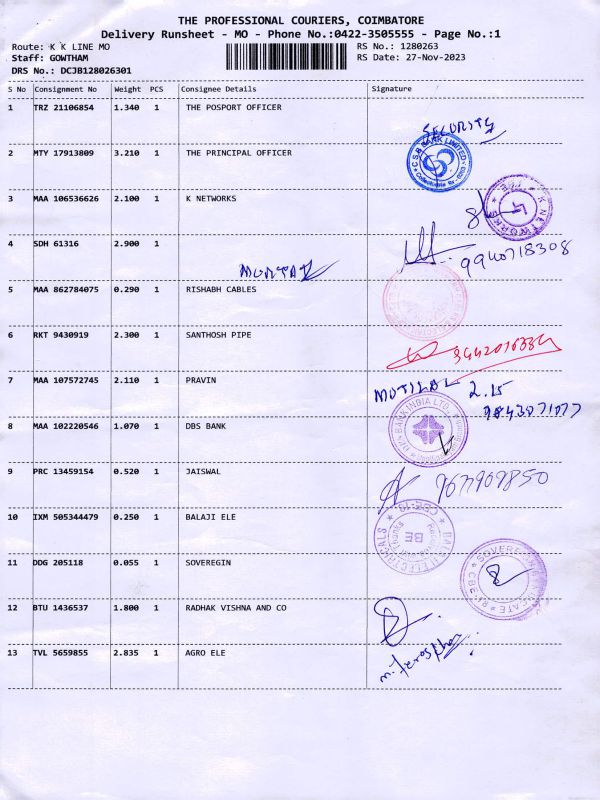 THE PROFESSIONAL COURIERS, COIMBATORE
Delivery Runsheet - MO - Phone No.:0422-3505555 - Page No.:1
Route: K K LINE MO
RS No.: 1280263
Staff: GOWTHAM
RS Date: 27-Nov-2023
DRS No.: DCJB128026301
S No Consignment No Weight PCS Consignee Details Signature
1 TRZ 21106854 1.340 1 THE POSPORT OFFICER
SECURITY
2 MTY 17913809 3.210 1 THE PRINCIPAL OFFICER
C.S.B BANK LIMITED
3 MAA 106536626 2.100 1 K NETWORKS
K NETWORKS
4 SDH 61316 2.900 1
9940718308
5 MAA 862784075 0.290 1 RISHABH CABLES
6 RKT 9430919 2.300 1 SANTHOSH PIPE
7 MAA 107572745 2.110 1 PRAVIN
MOTILAL 2.15
9843071077
8 MAA 102220546 1.070 1 DBS BANK
BANK INDIA LTD.
9 PRC 13459154 0.520 1 JAISWAL
10 IXM 505344479 0.250 1 BALAJI ELE
BALAJI ELECTRICALS
CBE-18
BE
11 DDG 205118 0.055 1 SOVEREGIN
12 BTU 1436537 1.800 1 RADHAK VISHNA AND CO
13 TVL 5659855 2.835 1 AGRO ELE